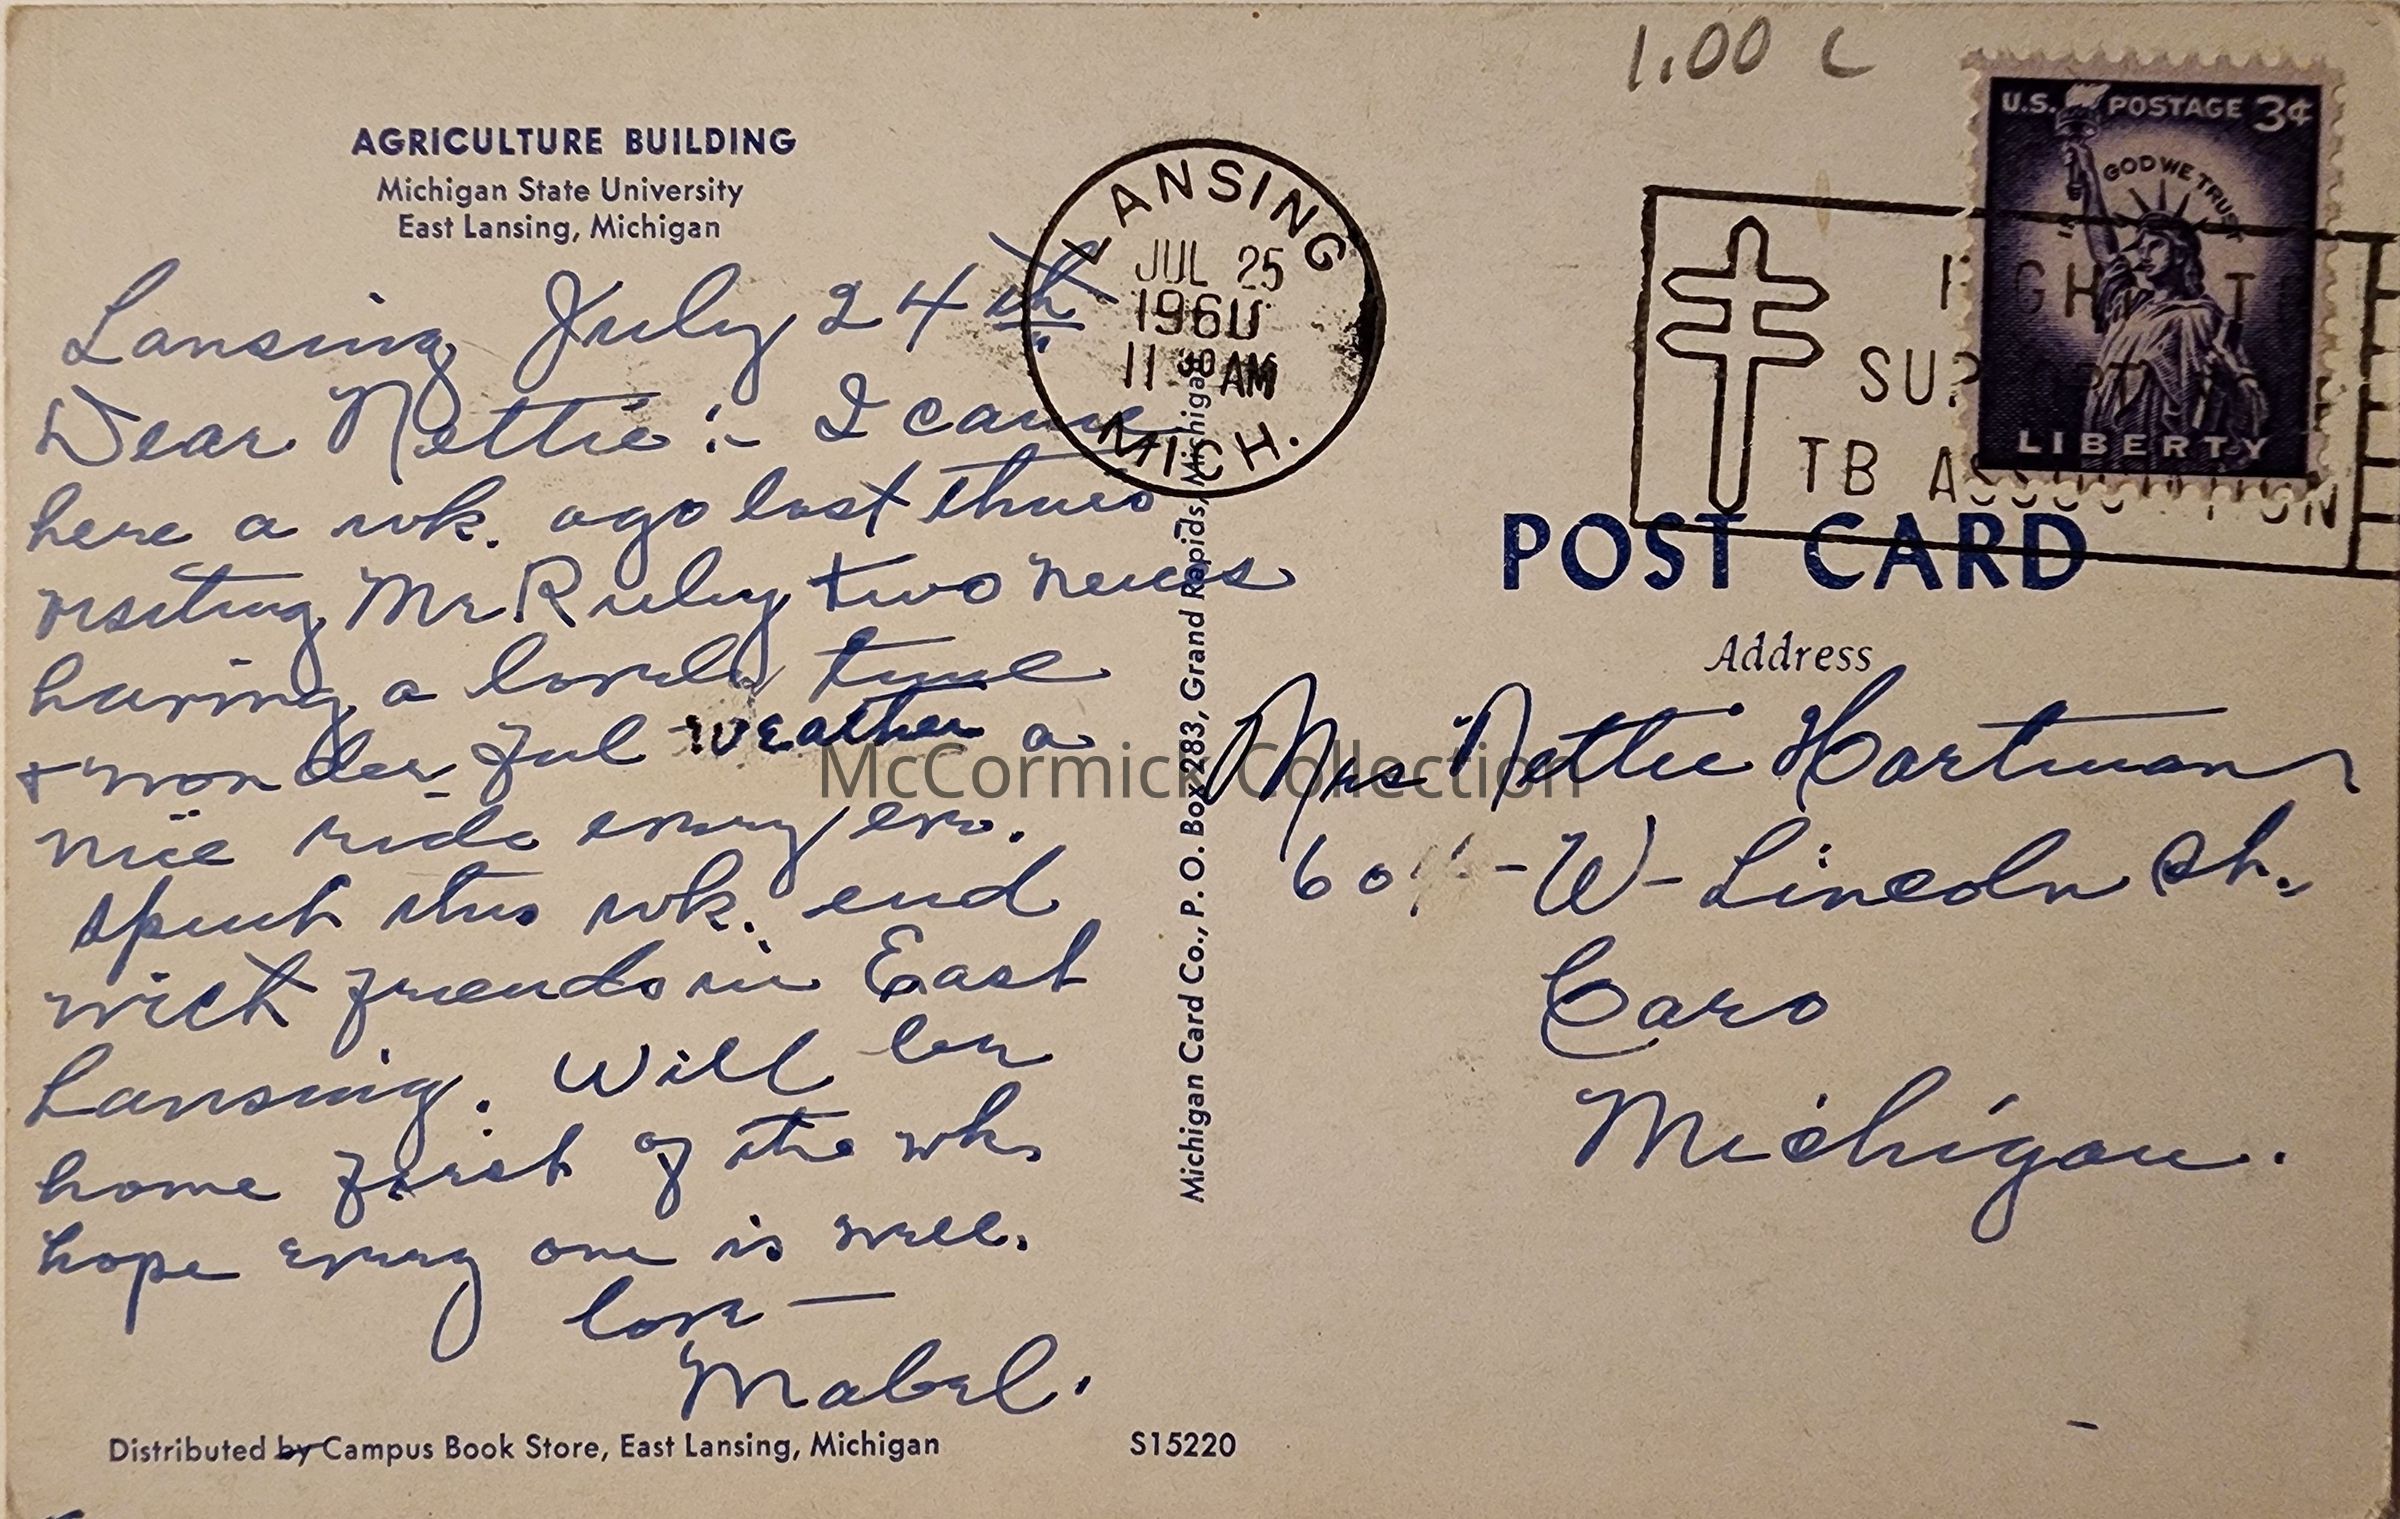 1.00 C
AGRICULTURE BUILDING
Michigan State University
East Lansing, Michigan
Lansing July 24th
Dear Nettie:- I came
here a wk. ago last thurs
visiting Mr Ruby two news
having a lovely time
+ wonder-ful weather a
nice ride every eve.
spent this wk. end
with friends in East
Lansing. Will be
home first of the wk.
hope every one is well.
love —
Mabel.
Distributed by Campus Book Store, East Lansing, Michigan
S15220
Michigan Card Co., P. O. Box 283, Grand Rapids, Michigan
LANSING
JUL 25
1960
11 30 AM
MICH.
FIGHT TB
SUPPORT
TB ASSOCIATION
U.S. POSTAGE 3¢
IN GOD WE TRUST
LIBERTY
POST CARD
Address
Mrs Nettie Hartman
W-Lincoln St.
Caro
Michigan.
McCormick Collection